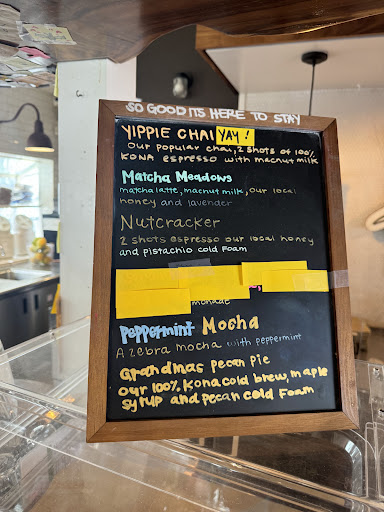 SO GOOD ITS HERE TO STAY
YIPPIE CHAI YAY!
OUR POPULAR CHAI, 2 SHOTS OF 100%
KONA ESPRESSO WITH MACNUT MILK
MATCHA MEADOWS
MATCHA LATTE, MACNUT MILK, OUR LOCAL
HONEY AND LAVENDER
NUTCRACKER
2 SHOTS ESPRESSO OUR LOCAL HONEY
AND PISTACHIO COLD FOAM
MONADE
PEPPERMINT MOCHA
A ZEBRA MOCHA WITH PEPPERMINT
GRANDMAS PECAN PIE
OUR 100% KONA COLD BREW, MAPLE
SYRUP AND PECAN COLD FOAM